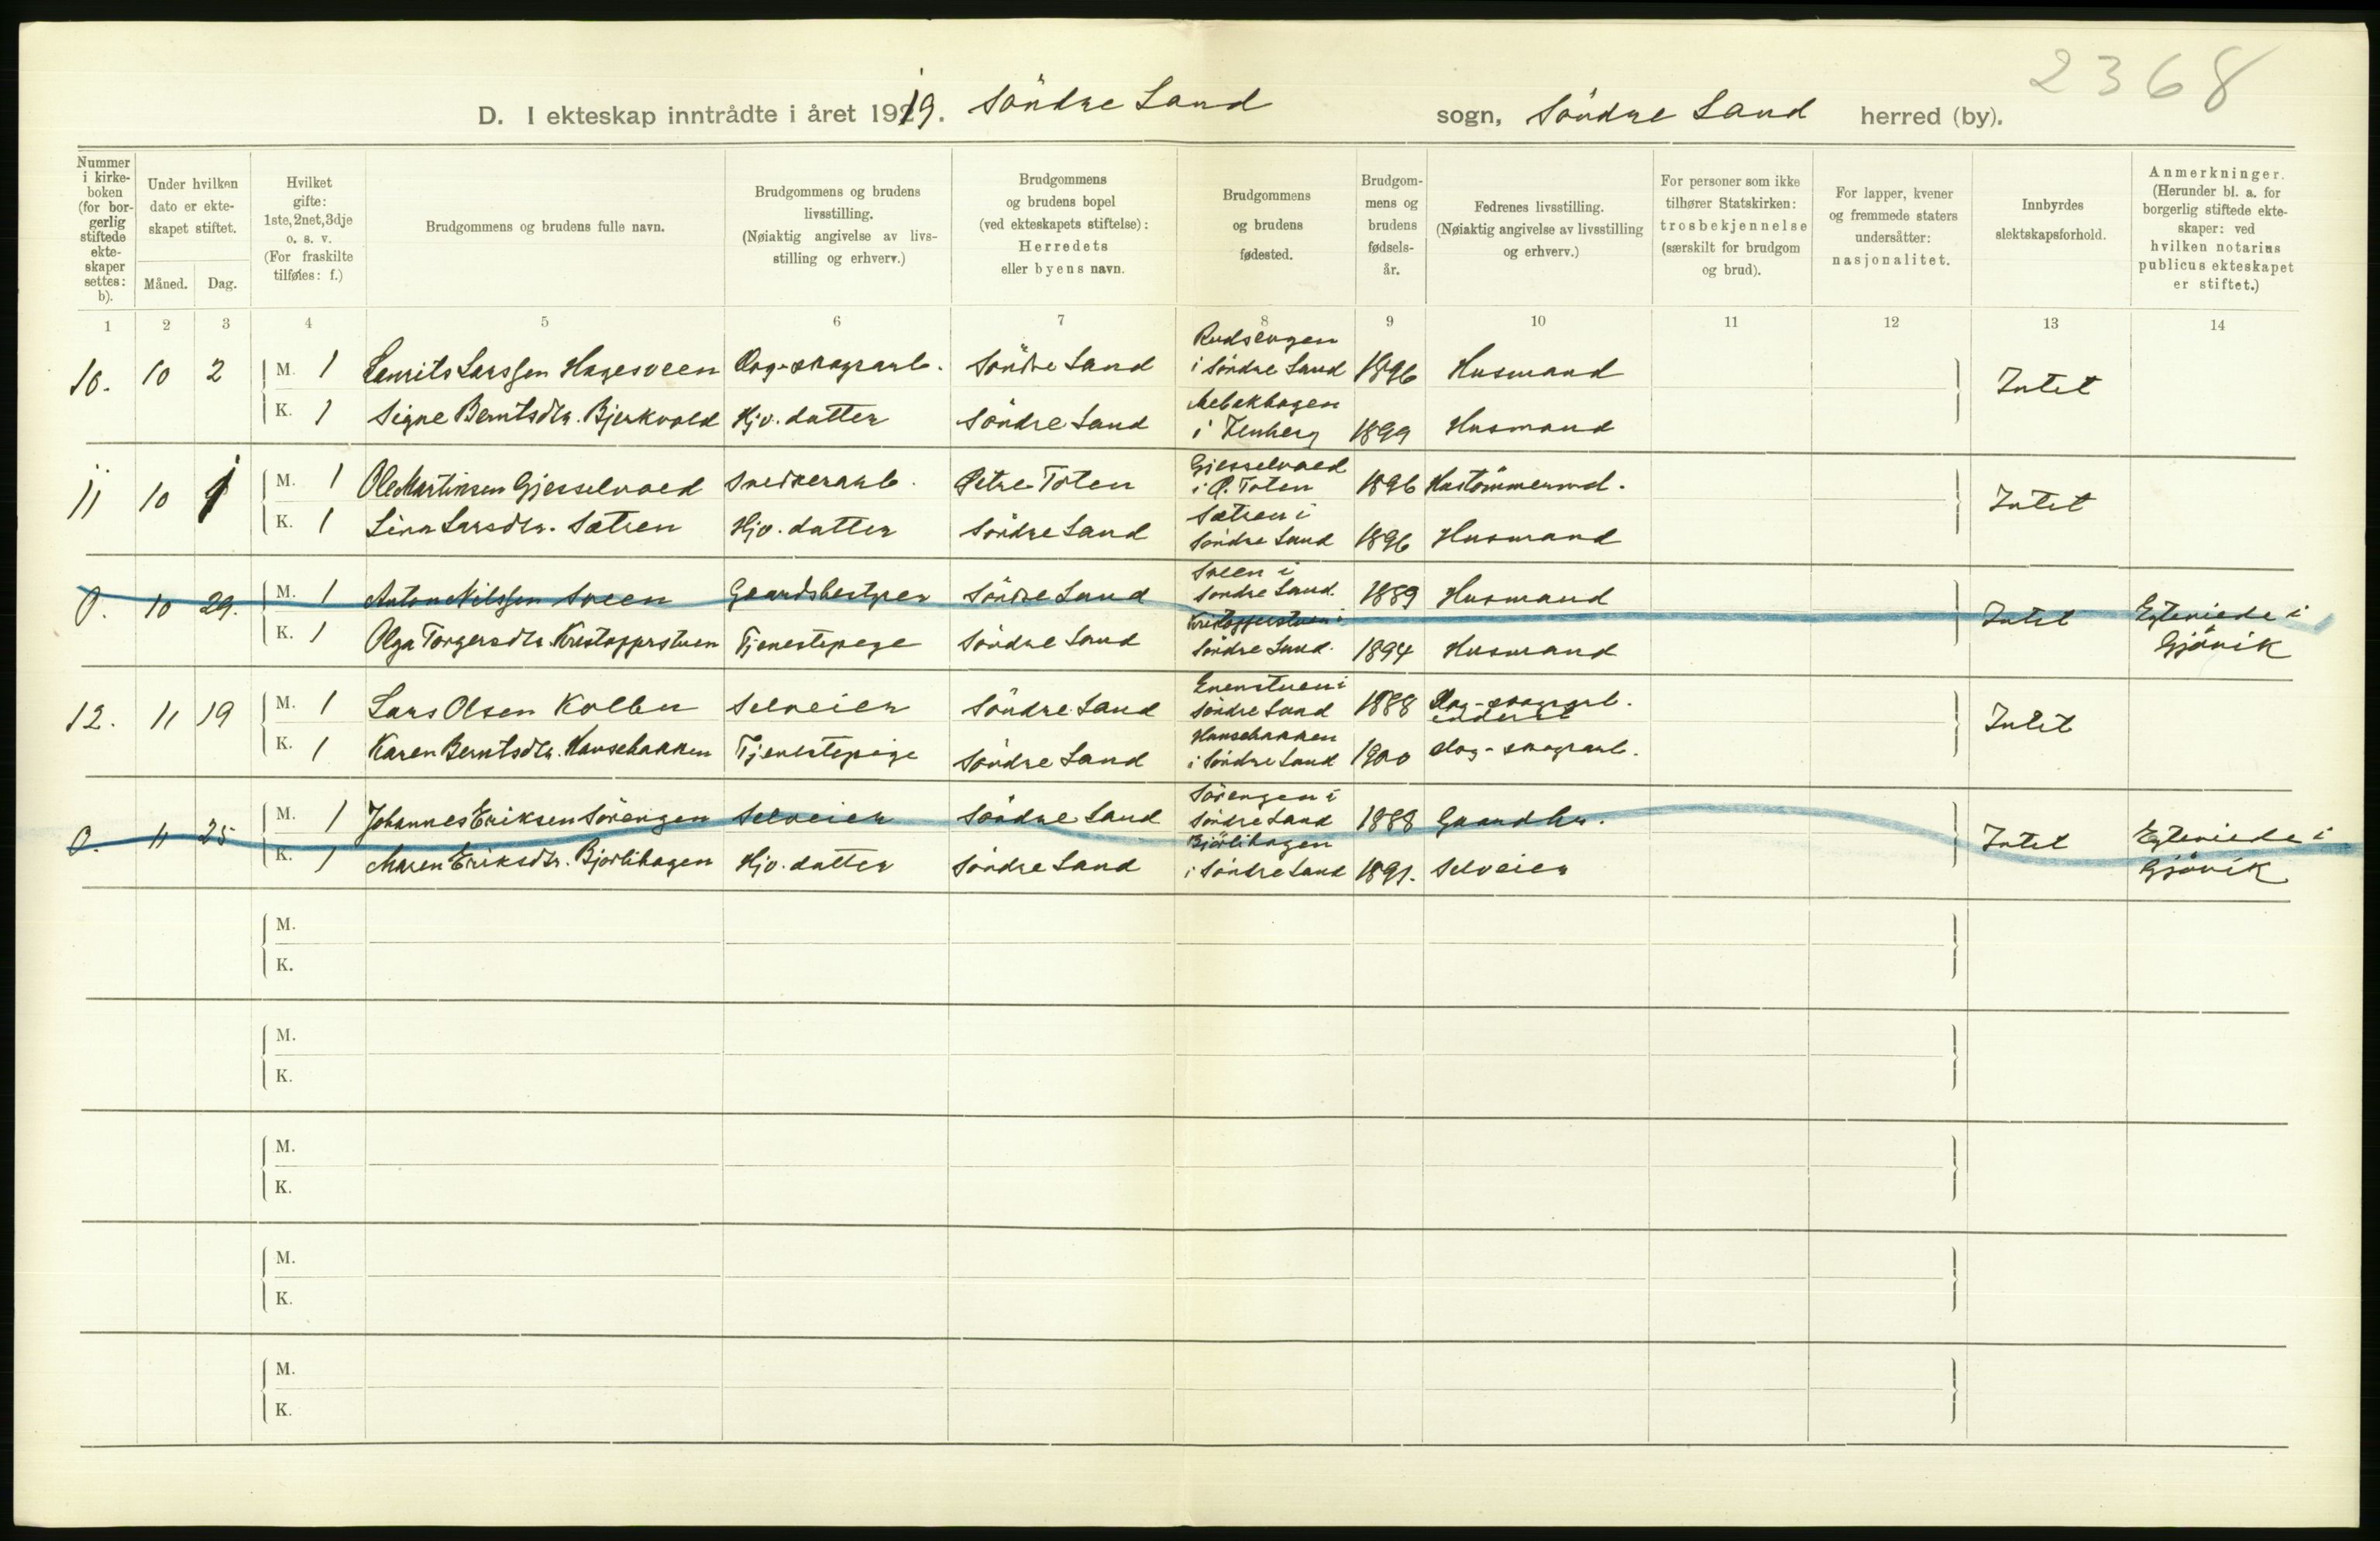 2368
D. I ekteskap inntrådte i året 1919. Söndre Land sogn, Söndre Land herred (by).
Nummer i kirkeboken (for borgerlig stiftede ekteskaper settes: b).
Under hvilken dato er ekteskapet stiftet.
Måned. Dag.
Hvilket gifte: 1ste, 2net, 3dje o. s. v. (For fraskilte tilføies: f.)
Brudgommens og brudens fulle navn.
Brudgommens og brudens livsstilling. (Nøiaktig angivelse av livsstilling og erhverv.)
Brudgommens og brudens bopel (ved ekteskapets stiftelse): Herredets eller byens navn.
Brudgommens og brudens fødested.
Brudgommens og brudens fødselsår.
Fedrenes livsstilling. (Nøiaktig angivelse av livsstilling og erhverv.)
For personer som ikke tilhører Statskirken: trosbekjennelse (særskilt for brudgom og brud).
For lapper, kvener og fremmede staters undersåtter: nasjonalitet.
Innbyrdes slektskapsforhold.
Anmerkninger. (Herunder bl. a. for borgerlig stiftede ekteskaper: ved hvilken notarius publicus ekteskapet er stiftet.)
1 2 3 4 5 6 7 8 9 10 11 12 13 14
10. 10 2 M. 1 Laurits Larssen Hagesveen Dag-skogsarb. Söndre Land Rudsengen i Söndre Land 1896 Husmand Intet
K. 1 Signe Berntsdtr. Bjerkvold Hjv. datter Söndre Land i 1899 Husmand
11 10 M. 1 Ole Martinsen Gjesselvold Snekkerarb. Østre Toten Gjesselvold i Ø. Toten 1896 Hustömmermd. Intet
K. 1 Lina Larsdtr. Sætren Hjv. datter Söndre Land Sætren i Söndre Land 1896 Husmand
0. 10 29. M. 1 Anton Nilssen Sveen Gaardsbestyrer Söndre Land Sveen i Söndre Land 1889 Husmand Intet Egteviede i Gjövik
K. 1 Olga Torgersdtr. Kristopperstuen Tjenestepige Söndre Land Kristopperstuen i Söndre Land. 1894 Husmand
12. 11 19 M. 1 Lars Olsen Kolbu Selveier Söndre Land Evenstuen i Söndre Land 1888 Dag-skogsarb. Intet
K. 1 Karen Berntsdtr. Hansebakken Tjenestepige Söndre Land Hansebakken i Söndre Land 1900 Dag-skogsarb.
0. 11 25 M. 1 Johannes Eriksen Sörengen Selveier Söndre Land Sörengen i Söndre Land 1888 Gaardbr. Intet Egteviede i Gjövik
K. 1 Maren Eriksdtr. Bjørlihagen Hjv. datter Söndre Land Bjørlihagen i Söndre Land 1891. Selveier
M.
K.
M.
K.
M.
K.
M.
K.
M.
K.